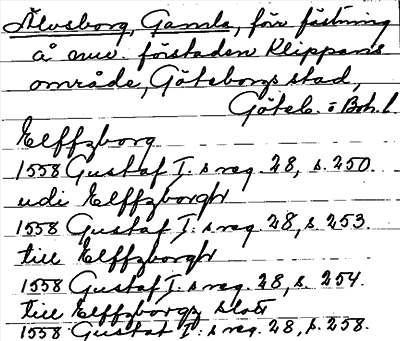 Älvsborg, Gamla, förr fästning
å nuv. förstaden Klippans
område, Göteborgs stad,
Göteb. o Boh. l.
Elffzborg
1558 Gustaf I: s reg. 28, s. 250.
udi Elffzborgh
1558 Gustaf I: s reg. 28, s. 253.
till Elffzborgh
1558 Gustaf I: s reg. 28, s. 254.
till Elffzborgz slott
1558 Gustaf I: s reg. 28, s. 258.